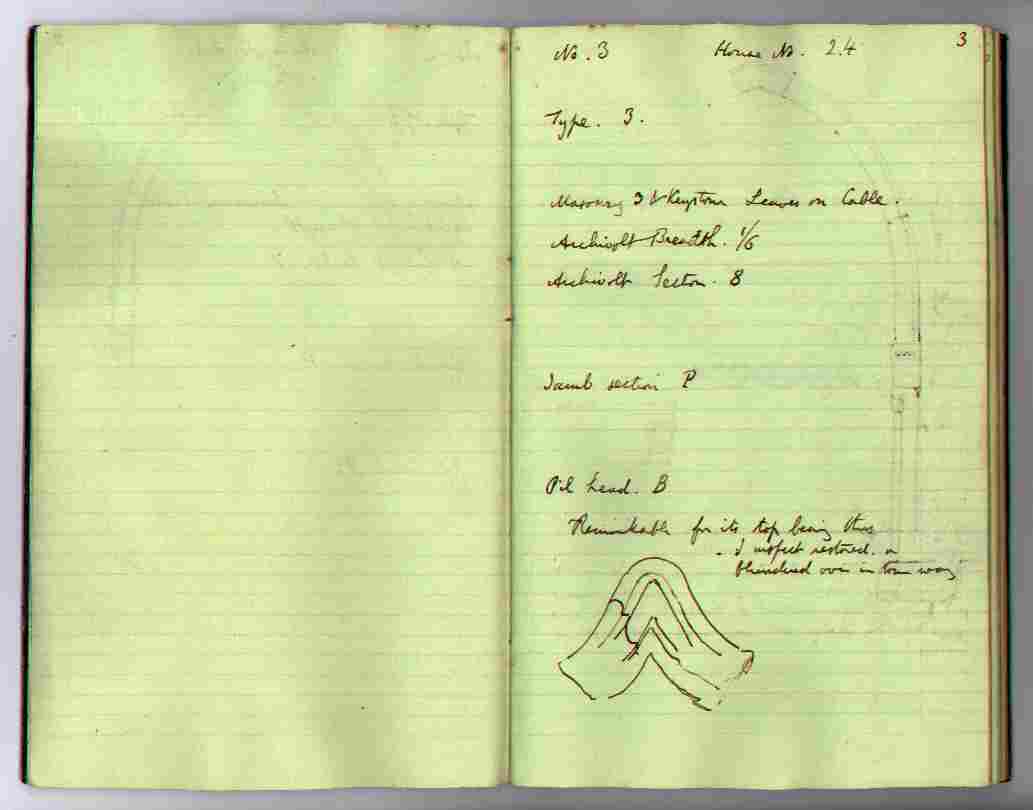 3
No. 3 House No. 24
Type. 3.
Masonry 3 & Keystone Leaves on Cable.
Archivolt Breadth. 1/6
Archivolt Section. 8
Jamb section P
Pil head. B
Remarkable for its top being thus
- I suspect restored. or
blundered over in some way